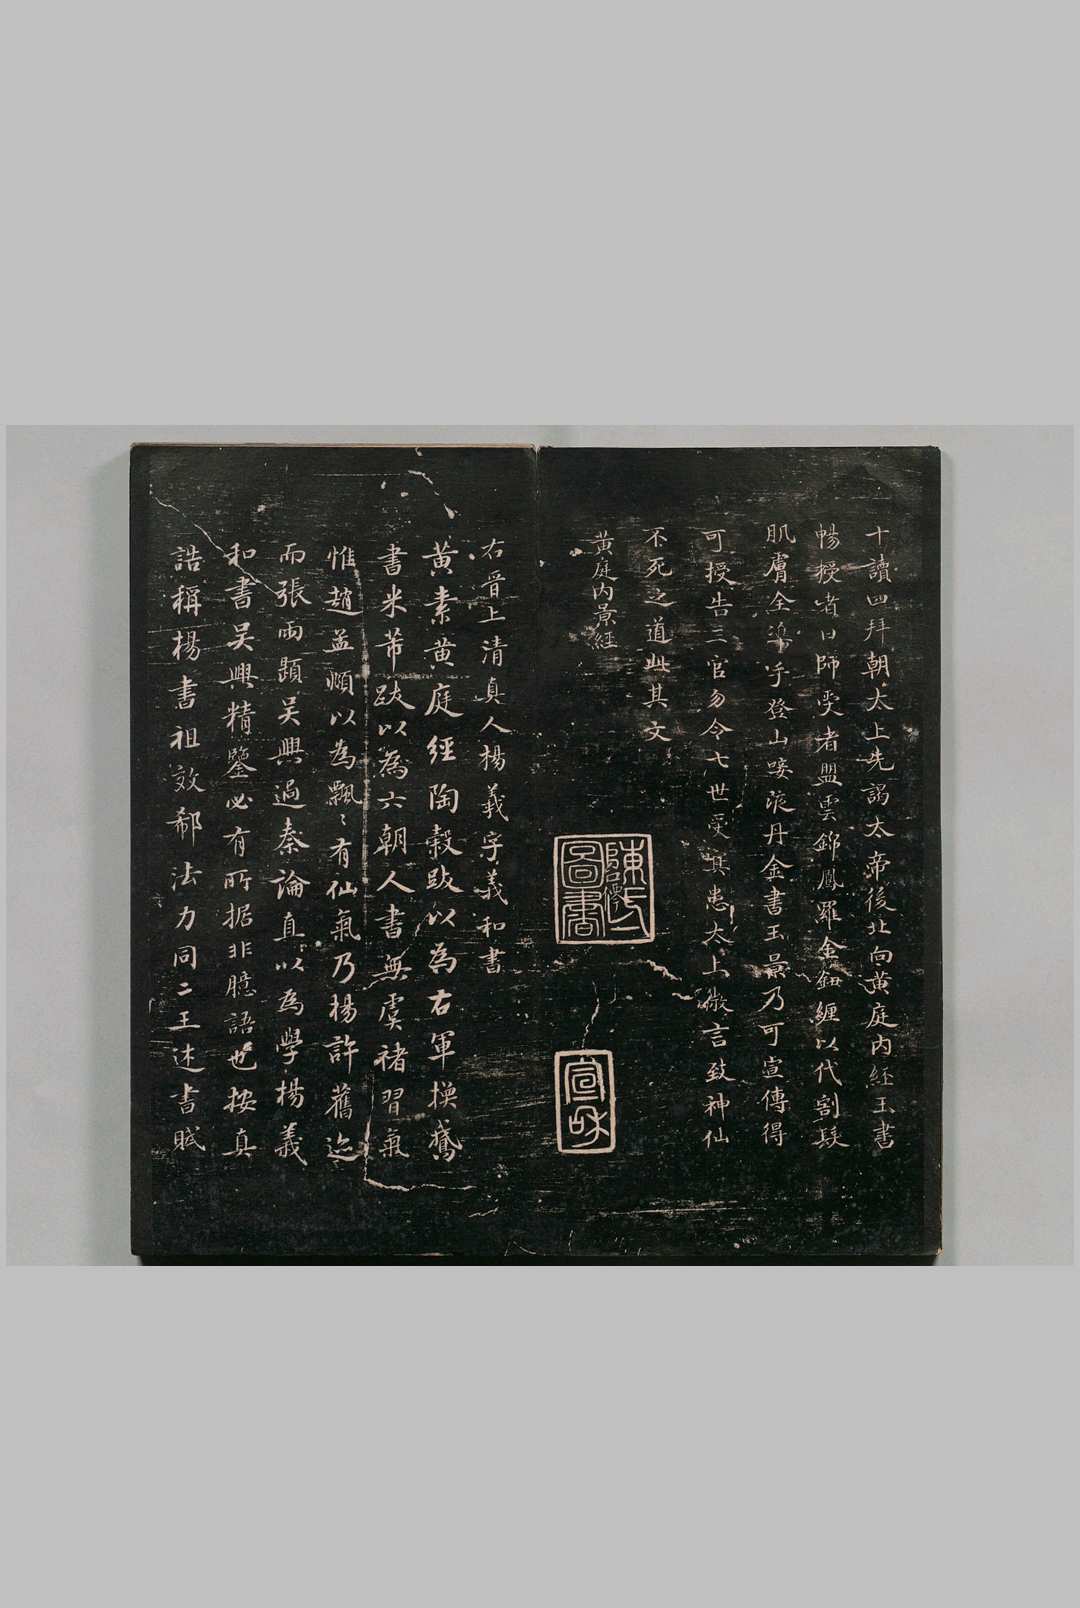 十讀四拜朝太上先謁太帝後北向黃庭內經玉書
暢授者曰師受者盟雲錦鳳羅金鈕纏以代割髮
肌膚全携手登山歃液丹金書玉景乃可宣傳得
可授告三官勿令七世受其患太上微言致神仙
不死之道此其文
黃庭內景經
陳氏圖書
宣和
右晉上清真人楊羲字羲和書
黃素黃庭經陶穀跋以為右軍換鵞
書米芾跋以為六朝人書無虞褚習氣
惟趙孟頫以為飄〻有仙氣乃楊許舊迹
而張雨題吳興過秦論直以為學楊羲
和書吳興精鑒必有所据非臆語也按真
誥稱楊書祖效郗法力同二王述書賦